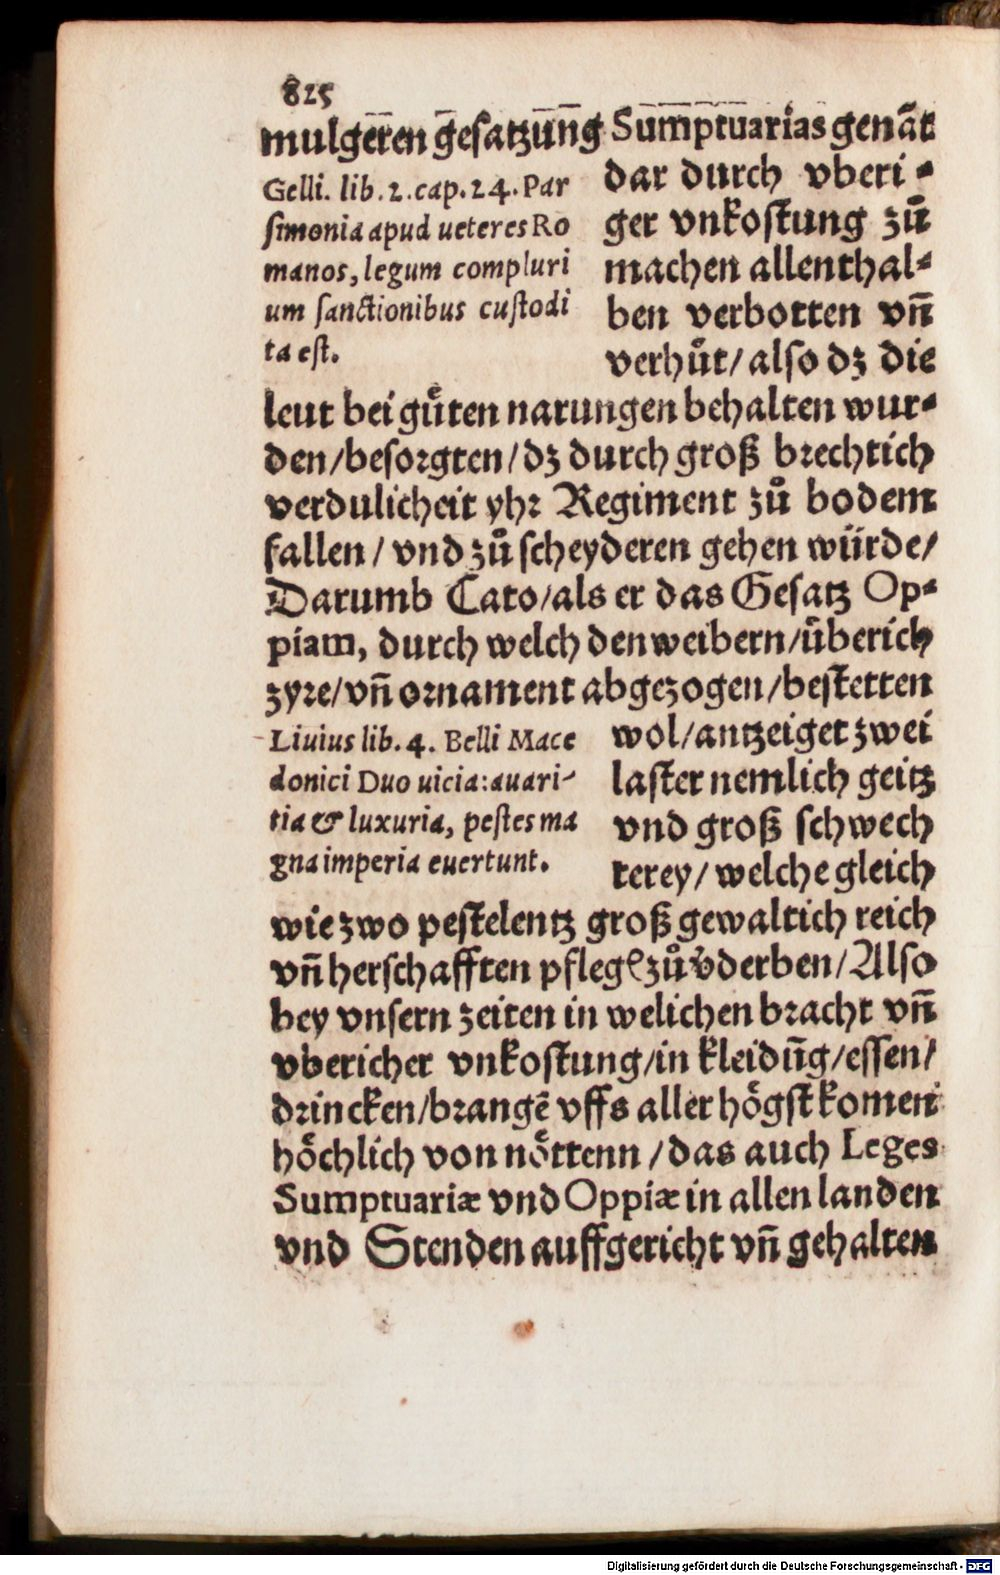 825
mulgeren gesatzung Sumptuarias genāt
Gelli. lib. 2. cap. 24. Par
simonia apud ueteres Ro
manos, legum compluri
um sanctionibus custodi
ta est.
dar durch vberi-
ger vnkostung zů
machen allenthal-
ben verbotten vn̄
verhůt/also dz die
leut bei gůten narungen behalten wur-
den/besorgten/dz durch groß brechtich
verdulicheit yhr Regiment zů bodem
fallen/vnd zů scheyderen gehen würde/
Darumb Cato/als er das Gesatz Op-
piam, durch welch den weibern/überich
zyre/vn̄ ornament abgezogen/bestetten
Liuius lib. 4. Belli Mace
donici Duo uicia: auari-
tia & luxuria, pestes ma
gna imperia euertunt.
wol/antzeiget zwei
laster nemlich geitz
vnd groß schwech
terey/welche gleich
wie zwo pestelentz groß gewaltich reich
vn̄ herschafften pflegē zů v̄derben/Also
bey vnsern zeiten in welichen bracht vn̄
vbericher vnkostung/in kleidūg/essen/
drincken/brangē vffs aller högst komen
höchlich von nöttenn/das auch Leges
Sumptuariæ vnd Oppiæ in allen landen
vnd Stenden auffgericht vn̄ gehalten
Digitalisierung gefördert durch die Deutsche Forschungsgemeinschaft - DFG